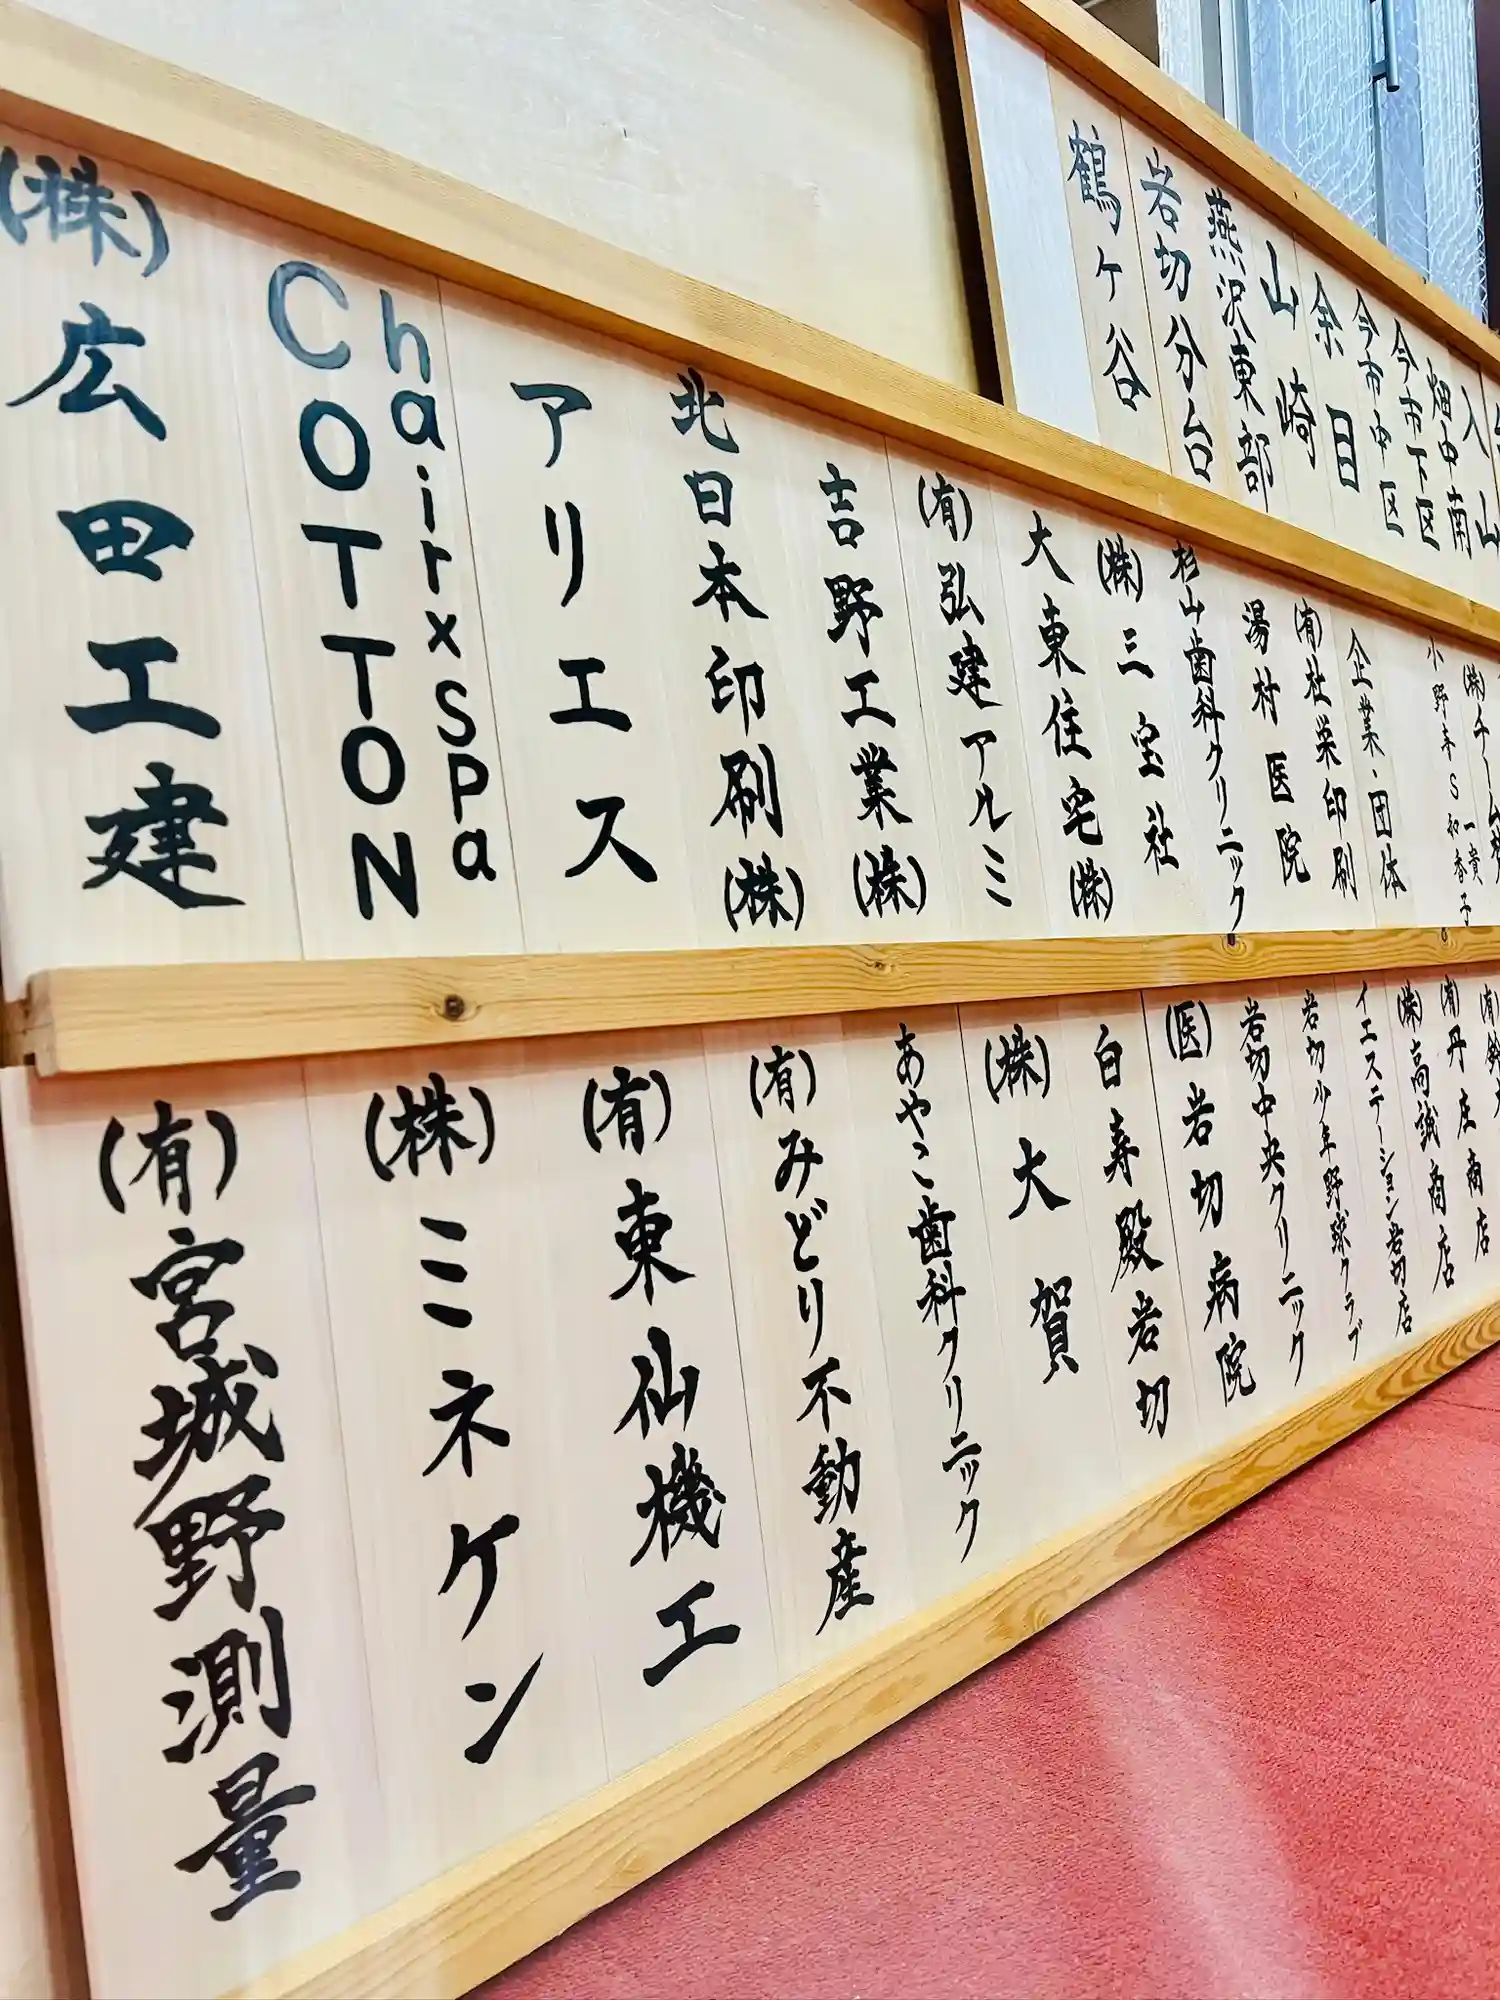 入山
畑中南
今市下区
今市中区
余目
山崎
燕沢東部
岩切分台
鶴ヶ谷
企業・団体
(有)社栄印刷
湯村医院
杉山歯科クリニック
(株)三宝社
大東住宅(株)
(有)弘建アルミ
吉野工業(株)
北日本印刷(株)
アリエス
Chairxspa
COTTON
(株)広田工建
(有)丹庄商店
(株)高誠商店
イエステーション岩切店
岩切少年野球クラブ
岩切中央クリニック
(医)岩切病院
白寿殿岩切
(株)大賀
あやこ歯科クリニック
(有)みどり不動産
(有)東仙機工
(株)ミネケン
(有)宮城野測量